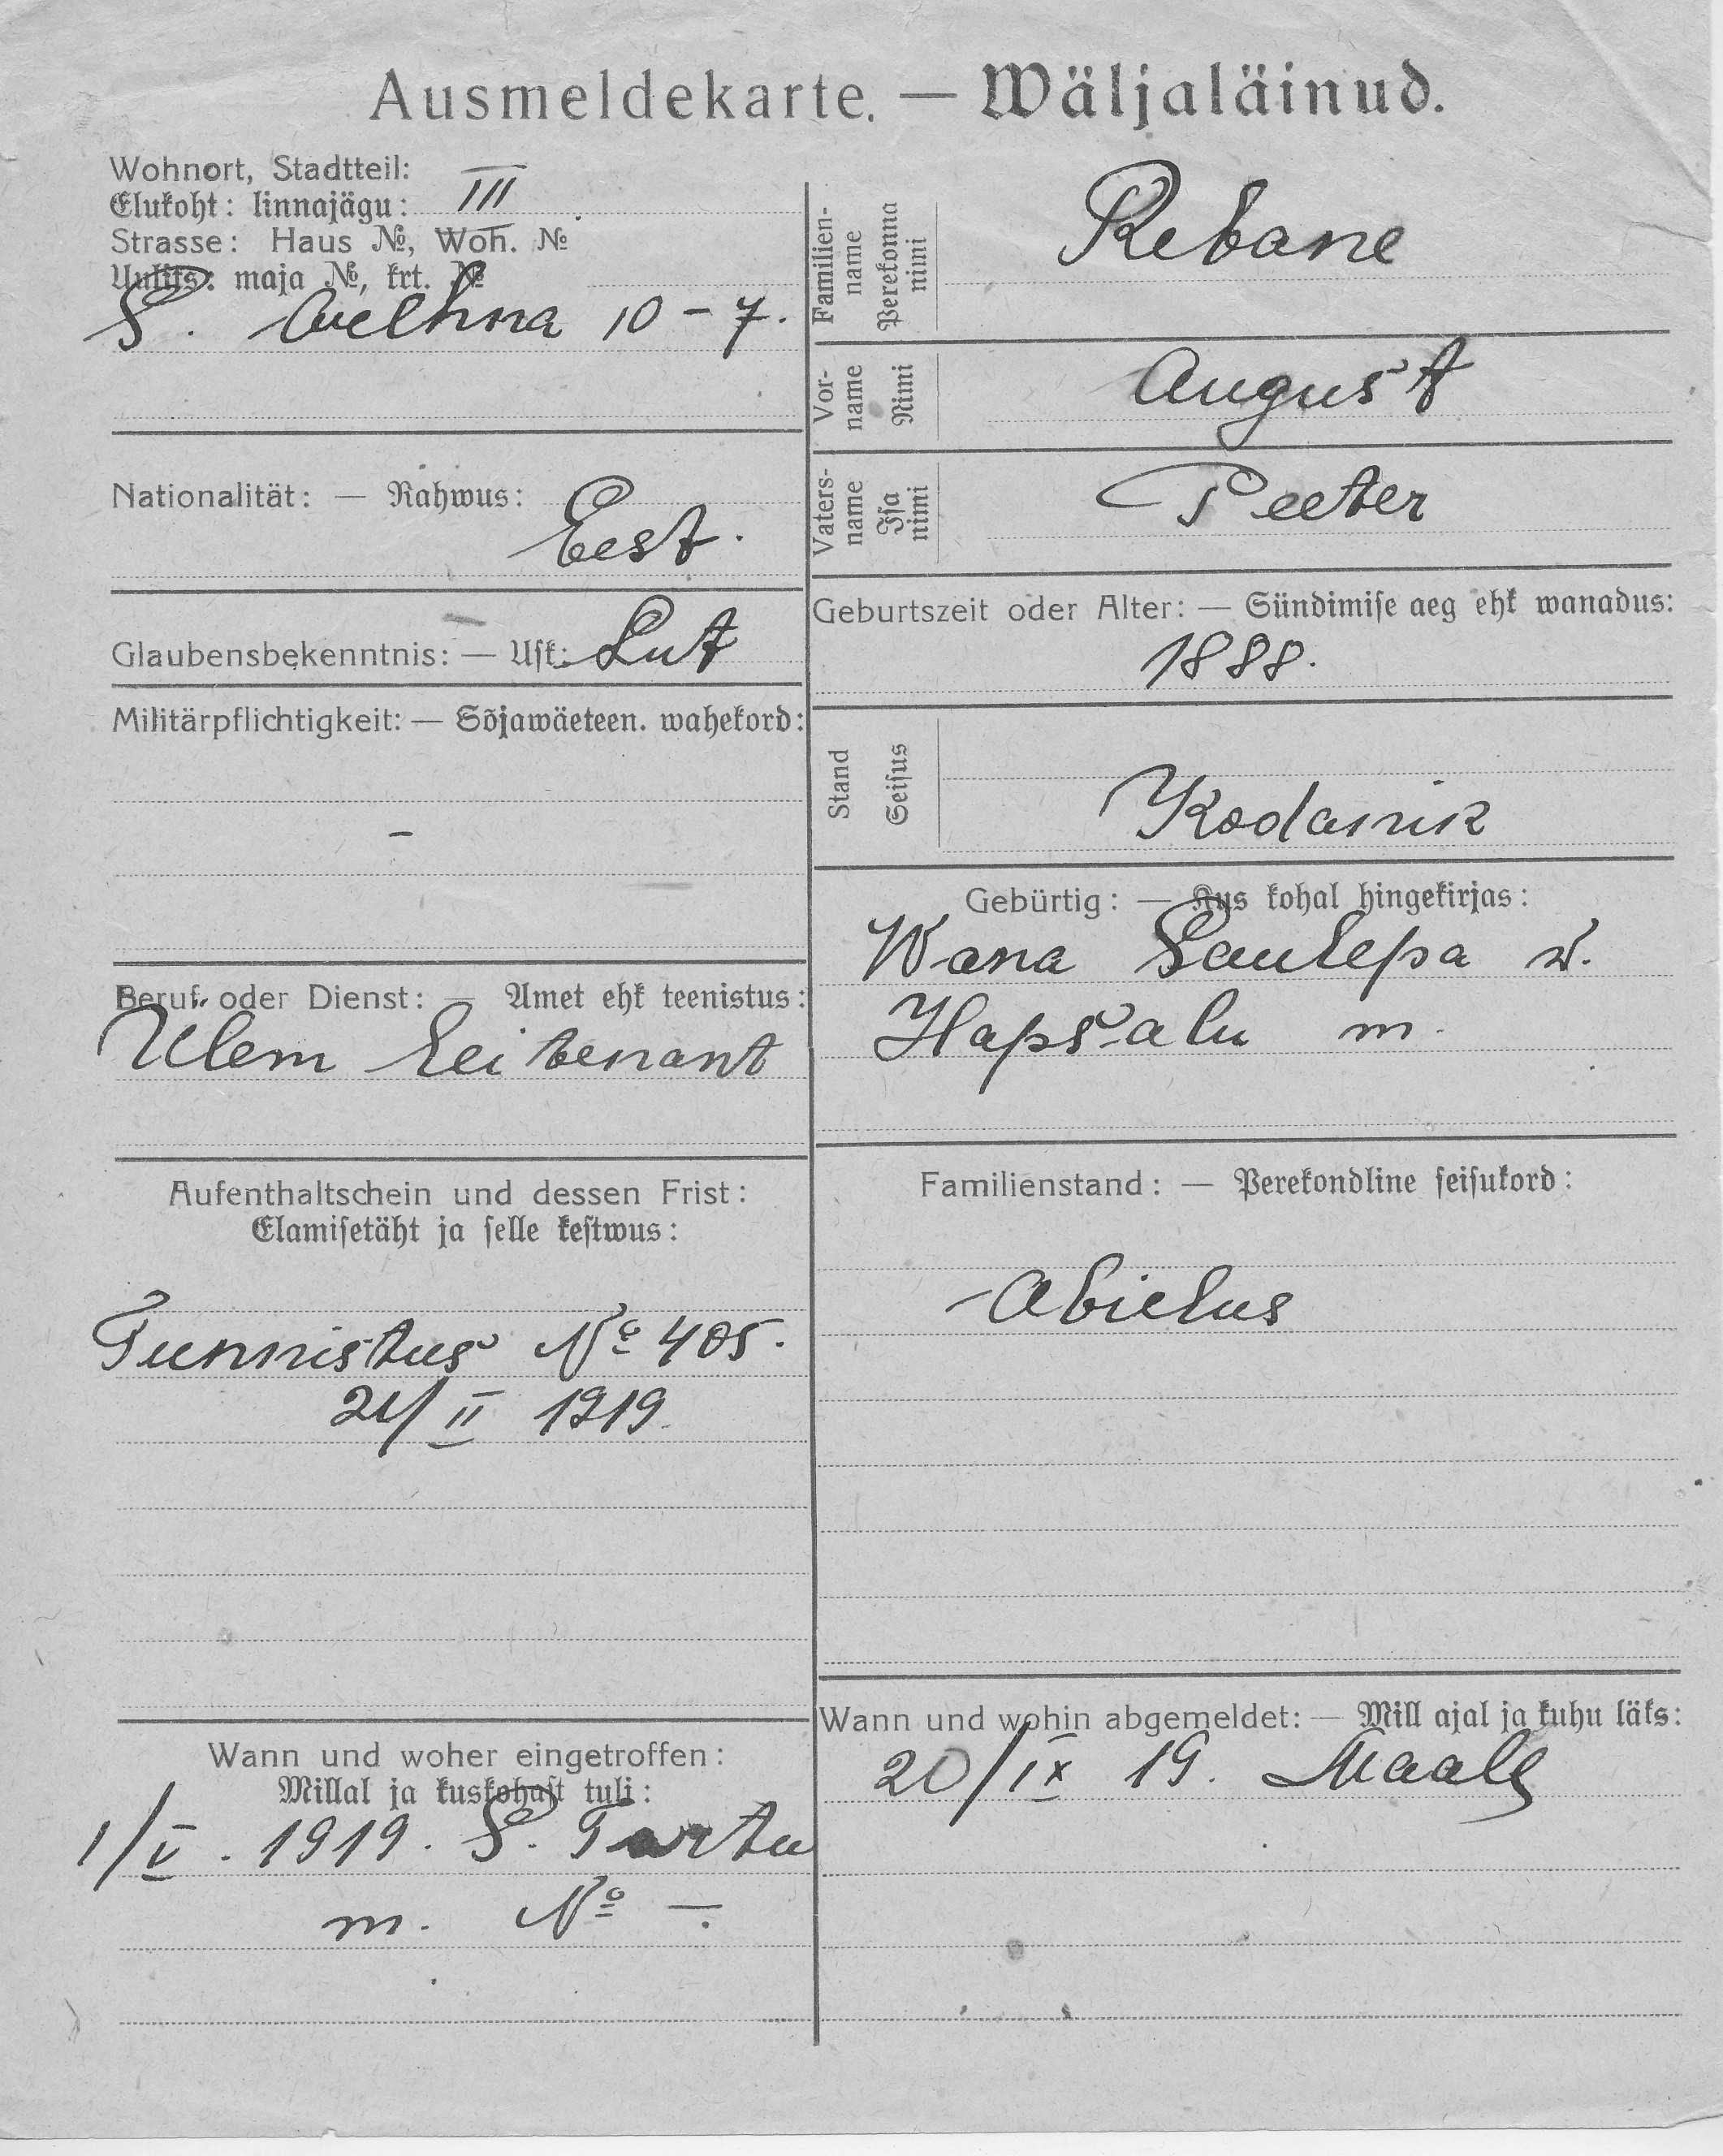 Ausmeldekarte. — Wäljaläinud.
Wohnort, Stadtteil:
Elukoht: linnajägu: III
Strasse: Haus №, Woh. №
Uulits: maja №, krt. №
S. 10 - 7.
Nationalität: — Rahwus:
Eest.
Glaubensbekenntnis: — Usk: Lut
Militärpflichtigkeit: — Sõjawäeteen. wahekord:
–
Beruf oder Dienst: — Amet ehk teenistus:
Ülem leitenant
Aufenthaltschein und dessen Frist:
Elamisetäht ja selle kestwus:
Tunnistus № 405.
21/II 1919
Wann und woher eingetroffen:
Millal ja kuskohast tuli:
1/V. 1919. S. Tartu
m. № –.
Familien-
name
Perekonna
nimi
Rebane
Vor-
name
Nimi
August
Vaters-
name
Isa
nimi
Peeter
Geburtszeit oder Alter: — Sündimise aeg ehk wanadus:
1888.
Stand
Seisus
Kodanik
Gebürtig: — Kus kohal hingekirjas:
Wana Laulepa w.
Hapsalu m.
Familienstand: — Perekondline seisukord:
Abielus
Wann und wohin abgemeldet: — Mill ajal ja kuhu läks:
20/IX 19. Maale